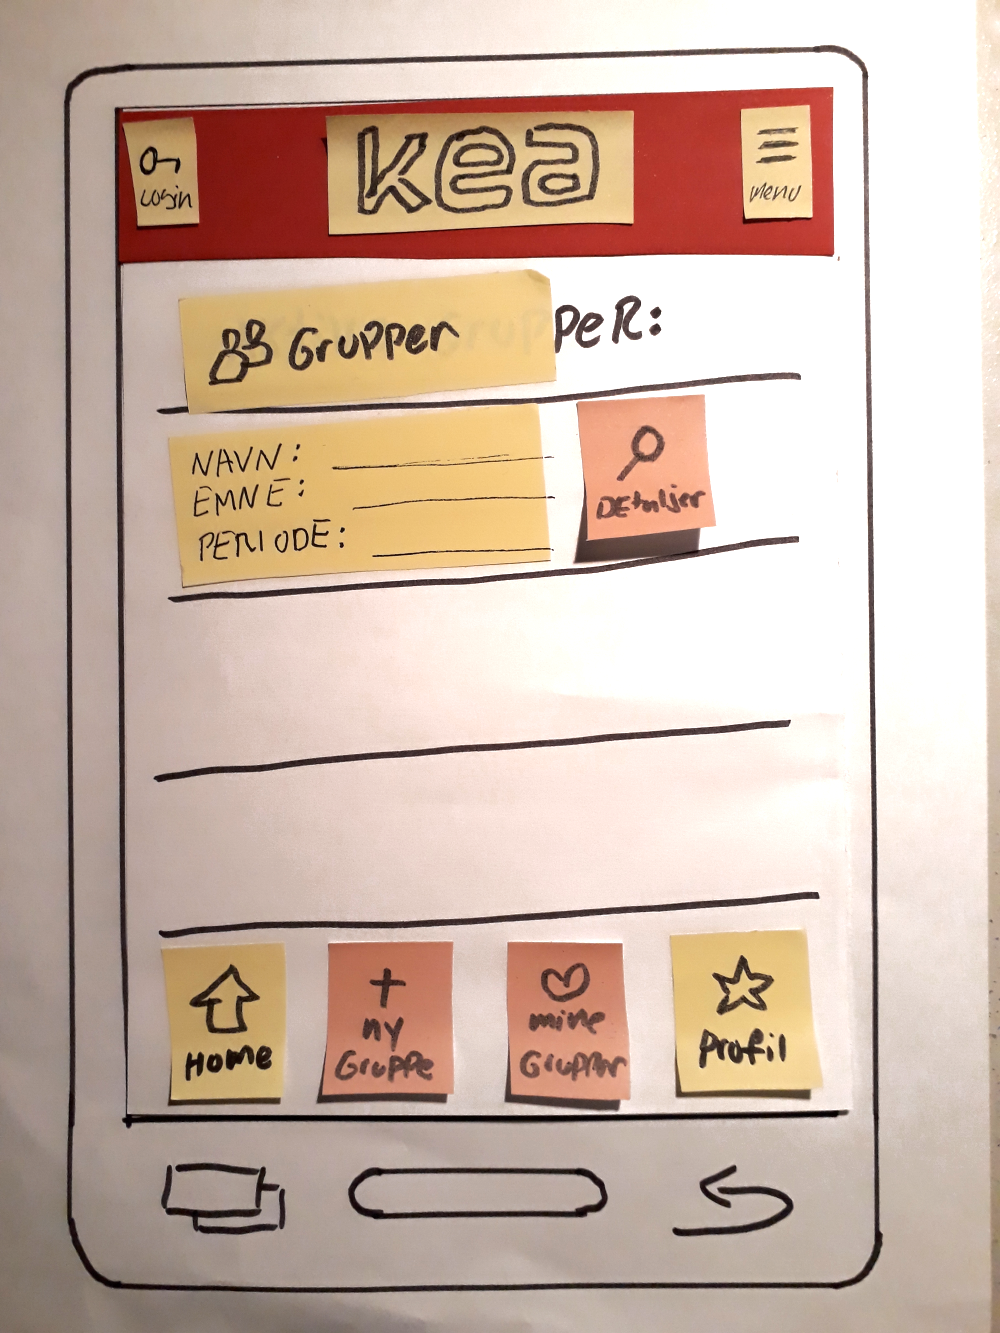 Login
kea
menu
Grupper
PPeR:
NAVN:
EMNE:
PERIODE:
DEtaljer
Home
ny
Gruppe
mine
Grupper
Profil